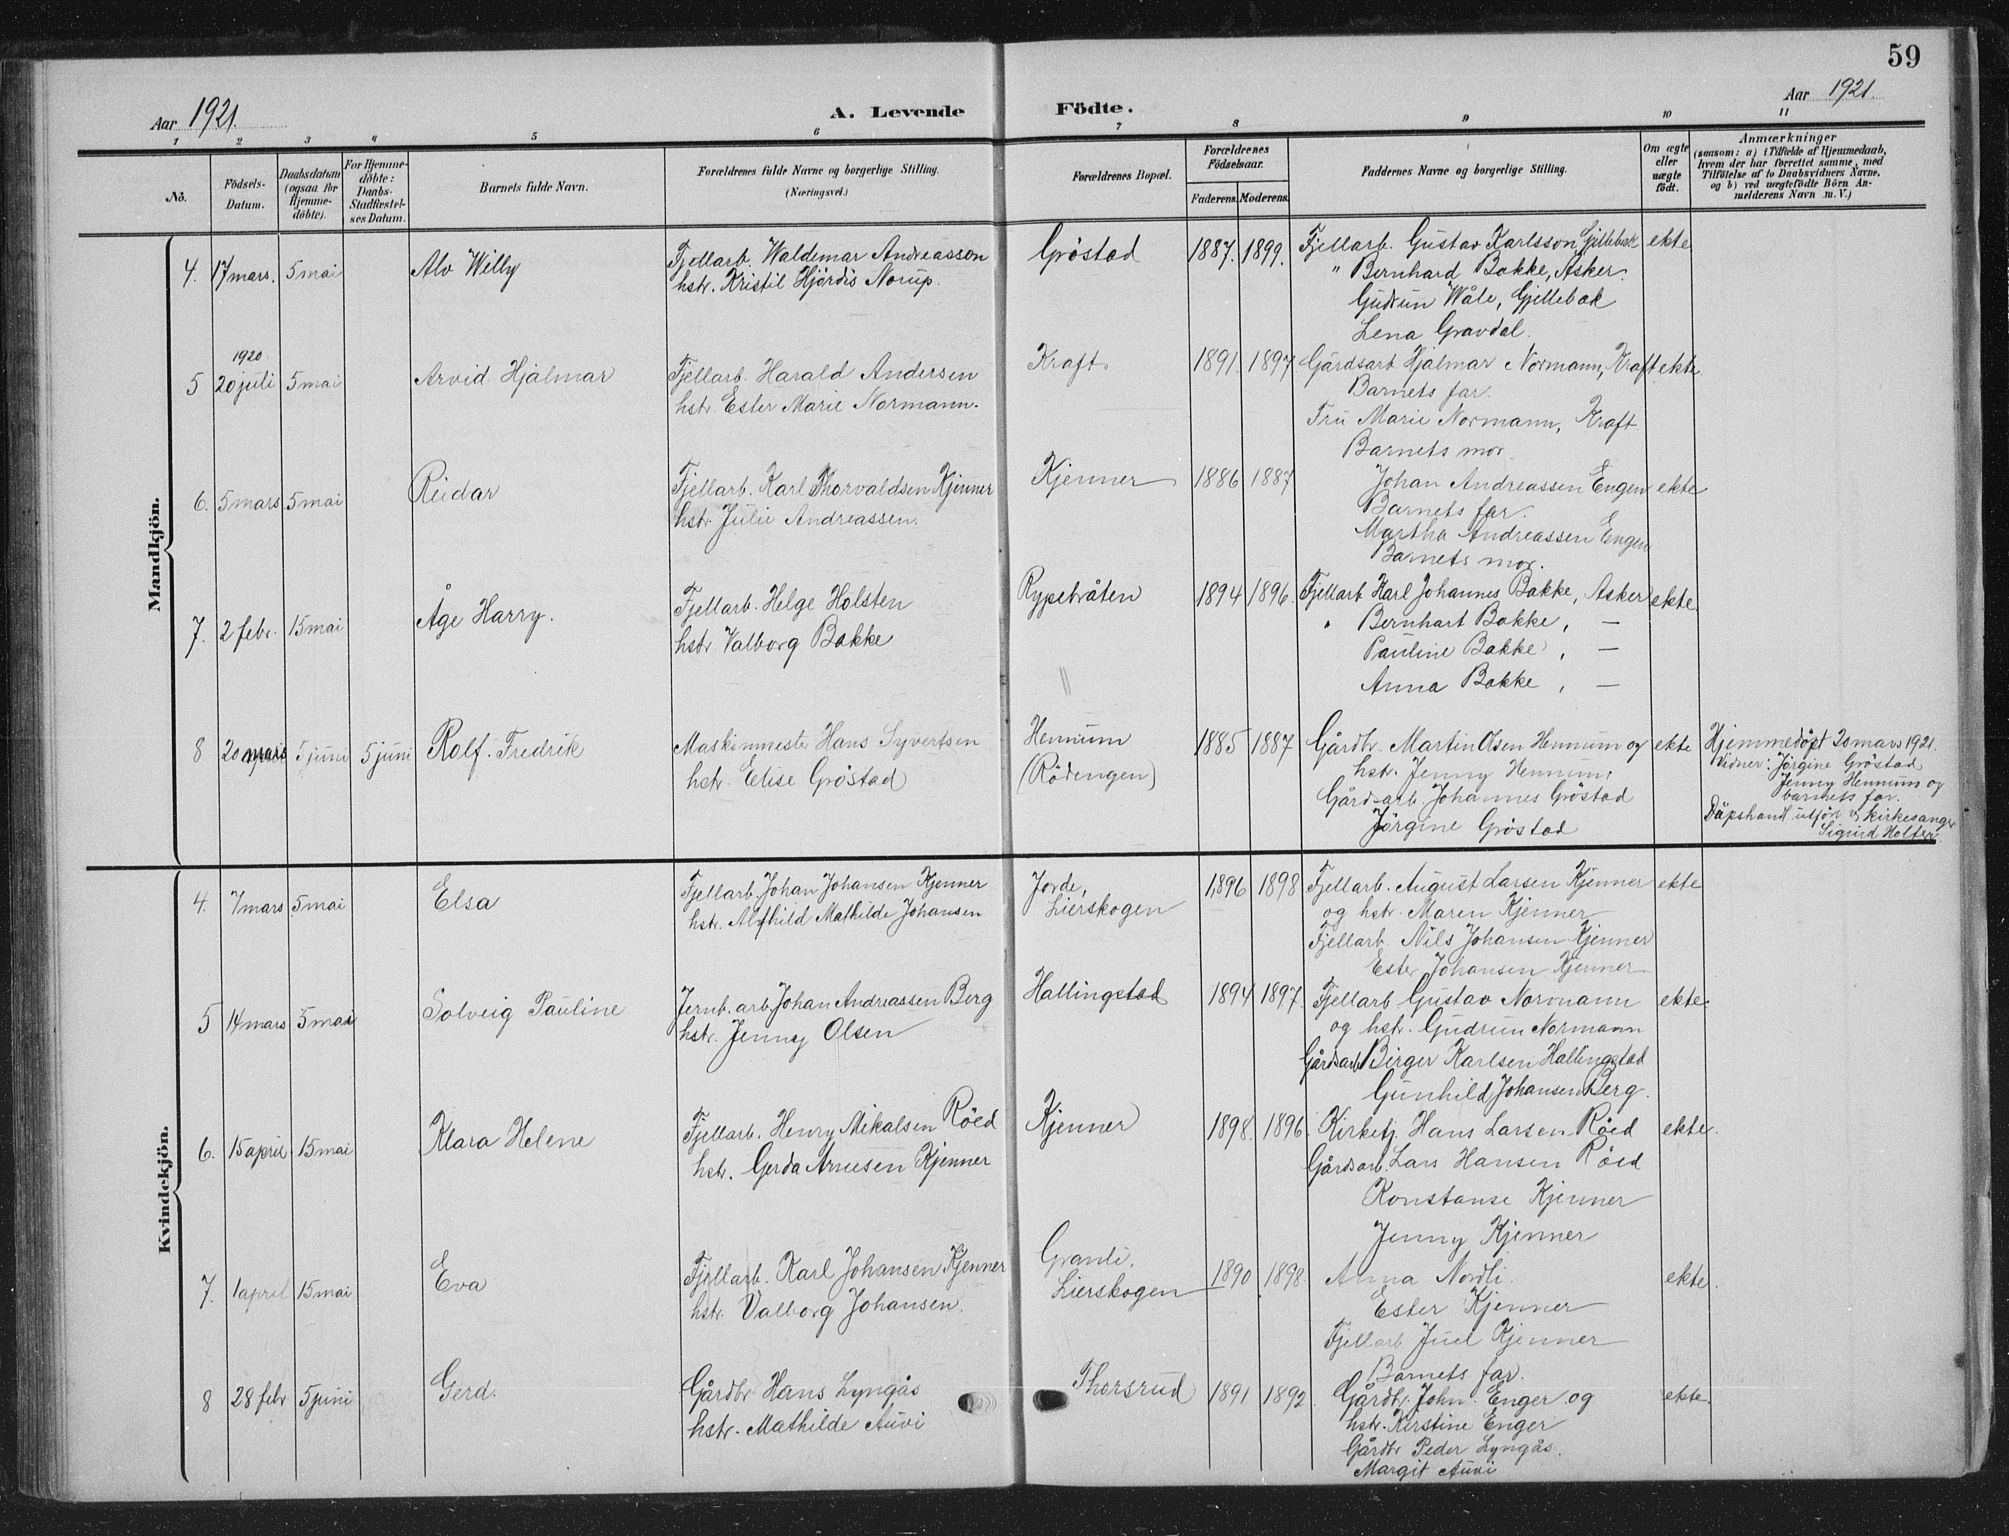 59
Aar 1921.
A. Levende Födte.
Aar 1921.
1 2 3 4 5 6 7 8 9 10 11
No.
Födsels-Datum.
Daabsdatum (ogsaa for Hjemmedöbte).
For Hjemmedöbte: Daabs-Stadfæstelses Datum.
Barnets fulde Navn.
Forældrenes fulde Navne og borgerlige Stilling.
(Næringsvei.)
Forældrenes Bopæl.
Forældrenes Födselsaar.
Faderens. Moderens.
Faddernes Navne og borgerlige Stilling.
Om ægte eller uægte födt.
Anmærkninger
(saasom: a) i Tilfælde af Hjemmedaab, hvem der har forrettet samme, med Tilföielse af to Daabsvidners Navne, og b) ved uægtefödte Börn Anmelderens Navn m. V.)
Mandkjön.
4. 17 mars. 5 mai Alv Willy
Fjellarb. Waldemar Andreasson
hstr. Kristil Hjördis Norup.
Gröstad 1887. 1899.
Fjellarb. Gustav Karlsson, Gjillebæk ekte
" Bernhard Bakke, Asker.
Gudrun Wåle, Gjillebæk
Lena Gravdal.
1920.
5 20 juli 5 mai Arvid Hjalmar
Fjellarb. Harald Andersen
hstr. Ester Marie Normann.
Kraft. 1891. 1897
Gårdsarb. Hjalmar Normann, Kraft ekte
Barnets far.
Fru Marie Normann, Kraft
Barnets mor.
6. 5 mars 5 mai Reidar
Fjellarb. Karl Thorvaldsen Kjenner
hstr. Julie Andreassen.
Kjenner 1886 1887
Johan Andreassen Engen ekte
Barnets far.
Martha Andreassen Engen
Barnets mor.
7. 2 febr. 15 mai Åge Harry.
Fjellarb. Helge Holsten
hstr. Valborg Bakke
Rypebråten 1894 1896.
Fjellarb Karl Johannes Bakke, Asker ekte
" Bernhart Bakke, —
Pauline Bakke, —
Anna Bakke, —
8 20 mars 5 juni 5 juni Rolf. Fredrik
Maskinmester Hans Syvertsen
hstr. Elise Gröstad
Hennum
(Rödengen)
1885 1887
Gårdbr. Martin Olsen Hennum og ekte
hstr. Jenny Hennum.
Gårdsarb. Johannes Gröstad
Jörgine Gröstad
Hjemmedöpt 20 mars 1921.
Vidner: Jörgine Gröstad
Jenny Hennum og
barnets far.
Dåpshand. utför. v/ Kirkesanger
Sigurd Holter
Kvindekjön.
4. 7 mars 5 mai Elsa
Fjellarb. Johan Johansen Kjenner
hstr. Alfhild Mathilde Johansen
Jorde,
Lierskogen
1896 1898
Fjellarb. August Larsen Kjenner ekte
og hstr. Maren Kjenner
Fjellarb. Nils Johansen Kjenner
Ester Johansen Kjenner
5 14 mars 5 mai Solveig Pauline
Jernb.arb. Johan Andreassen Berg
hstr. Jenny Olsen
Hallingstad 1894 1897.
Fjellarb. Gustav Normann ekte.
og hstr. Gudrun Normann
Gårdsarb Birger Karlsen Hallingstad
Gunhild Johansen Berg.
6. 15 april 15 mai Klara Helene
Fjellarb. Henry Mikalsen Röed
hstr. Gerda Arnesen Kjenner
Kjenner 1898. 1896.
Kirketj. Hans Larsen Röed ekte.
Gårdsarb. Lars Hansen Röed
Konstanse Kjenner
Jenny Kjenner
7. 1 april 15 mai Eva
Fjellarb. Karl Johansen Kjenner
hstr. Valborg Johansen.
Granli,
Lierskogen
1890 1898.
Anna Nordli. ekte.
Ester Kjenner
Fjellarb Juel Kjenner
Barnets far.
8 28 febr 5 juni Gerd.
Gårdbr Hans Lyngås
hstr. Mathilde Auvi
Thorsrud 1891 1892
Gårdbr. John Enger og ekte.
hstr. Kerstine Enger
Gårdbr Peder Lyngås.
Margit Auvi